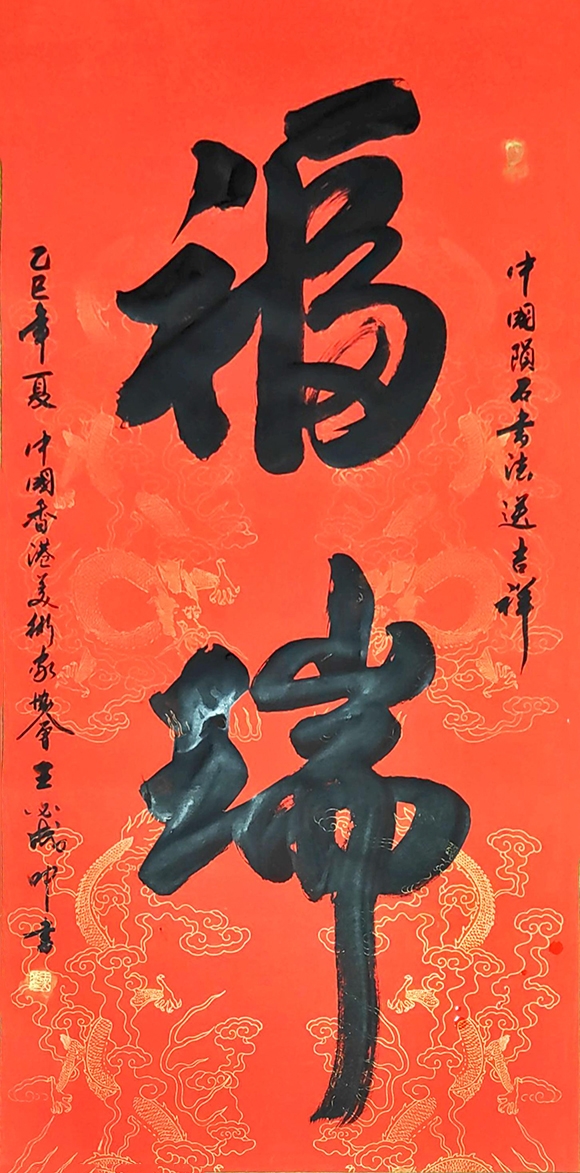 中國隕石書法送吉祥
福瑞
乙巳年夏 中國香港美術家協會 王必成 書